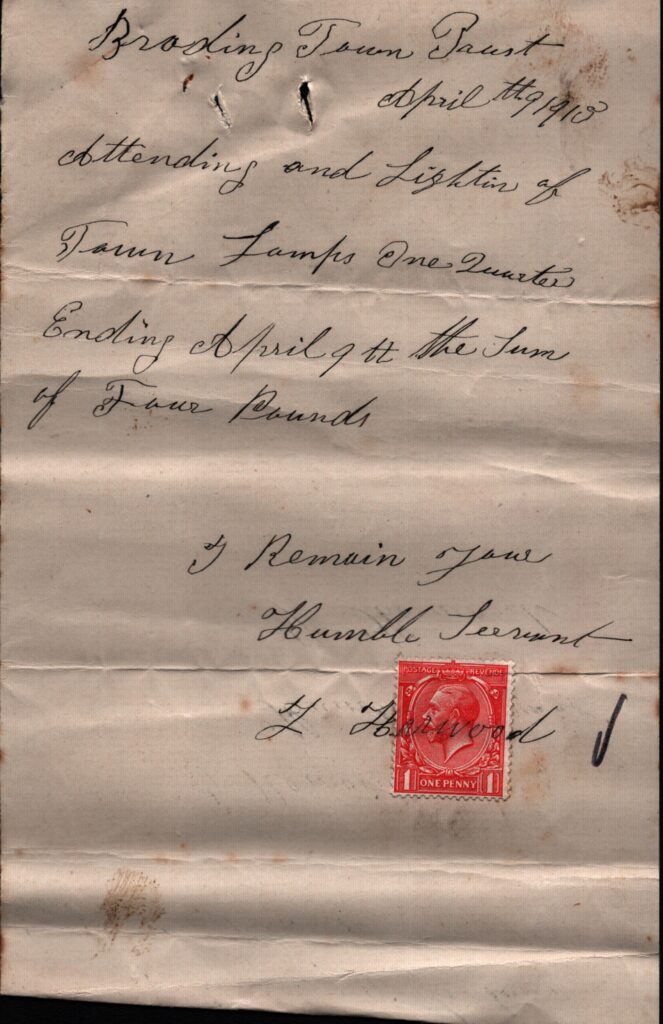 Brading Town Ttrust
April th9 1913
Attending and Lightin of
Town Lamps One Quarter
Ending April 9th the Sum
of Four Pounds
I Remain your
Humble Servant
Harwood
POSTAGE & REVENUE
1 ONE PENNY 1